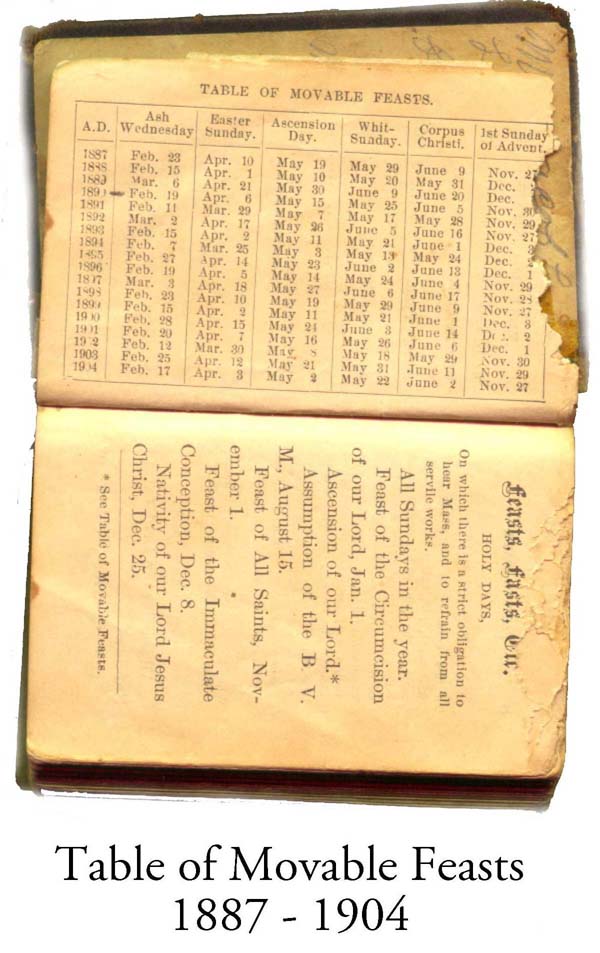 TABLE OF MOVABLE FEASTS.
A.D. Ash Wednesday Easter Sunday. Ascension Day. Whit-Sunday. Corpus Christi. 1st Sunday of Advent.
1887 Feb. 23 Apr. 10 May 19 May 29 June 9 Nov. 27
1888 Feb. 15 Apr. 1 May 10 May 20 May 31 Dec.
1889 Mar. 6 Apr. 21 May 30 June 9 June 20 Dec.
1890 Feb. 19 Apr. 6 May 15 May 25 June 5 Nov. 30
1891 Feb. 11 Mar. 29 May 7 May 17 May 28 Nov. 29
1892 Mar. 2 Apr. 17 May 26 June 5 June 16 Nov. 27
1893 Feb. 15 Apr. 2 May 11 May 21 June 1 Dec. 3
1894 Feb. 7 Mar. 25 May 3 May 13 May 24 Dec.
1895 Feb. 27 Apr. 14 May 23 June 2 June 13 Dec. 1
1896 Feb. 19 Apr. 5 May 14 May 24 June 4 Nov. 29
1897 Mar. 3 Apr. 18 May 27 June 6 June 17 Nov. 28
1898 Feb. 23 Apr. 10 May 19 May 29 June 9 Nov. 27
1899 Feb. 15 Apr. 2 May 11 May 21 June 1 Dec. 3
1900 Feb. 28 Apr. 15 May 24 June 3 June 14 Dec. 2
1901 Feb. 20 Apr. 7 May 16 May 26 June 6 Dec. 1
1902 Feb. 12 Mar. 30 May 8 May 18 May 29 Nov. 30
1903 Feb. 25 Apr. 12 May 21 May 31 June 11 Nov. 29
1904 Feb. 17 Apr. 3 May 2 May 22 June 2 Nov. 27
Feasts, Fasts, Etc.
HOLY DAYS,
On which there is a strict obligation to
hear Mass, and to refrain from all
servile works.
All Sundays in the year.
Feast of the Circumcision
of our Lord, Jan. 1.
Ascension of our Lord.*
Assumption of the B. V.
M., August 15.
Feast of All Saints, Nov-
ember 1.
Feast of the Immaculate
Conception, Dec. 8.
Nativity of our Lord Jesus
Christ, Dec. 25.
* See Table of Movable Feasts.
Table of Movable Feasts
1887 - 1904